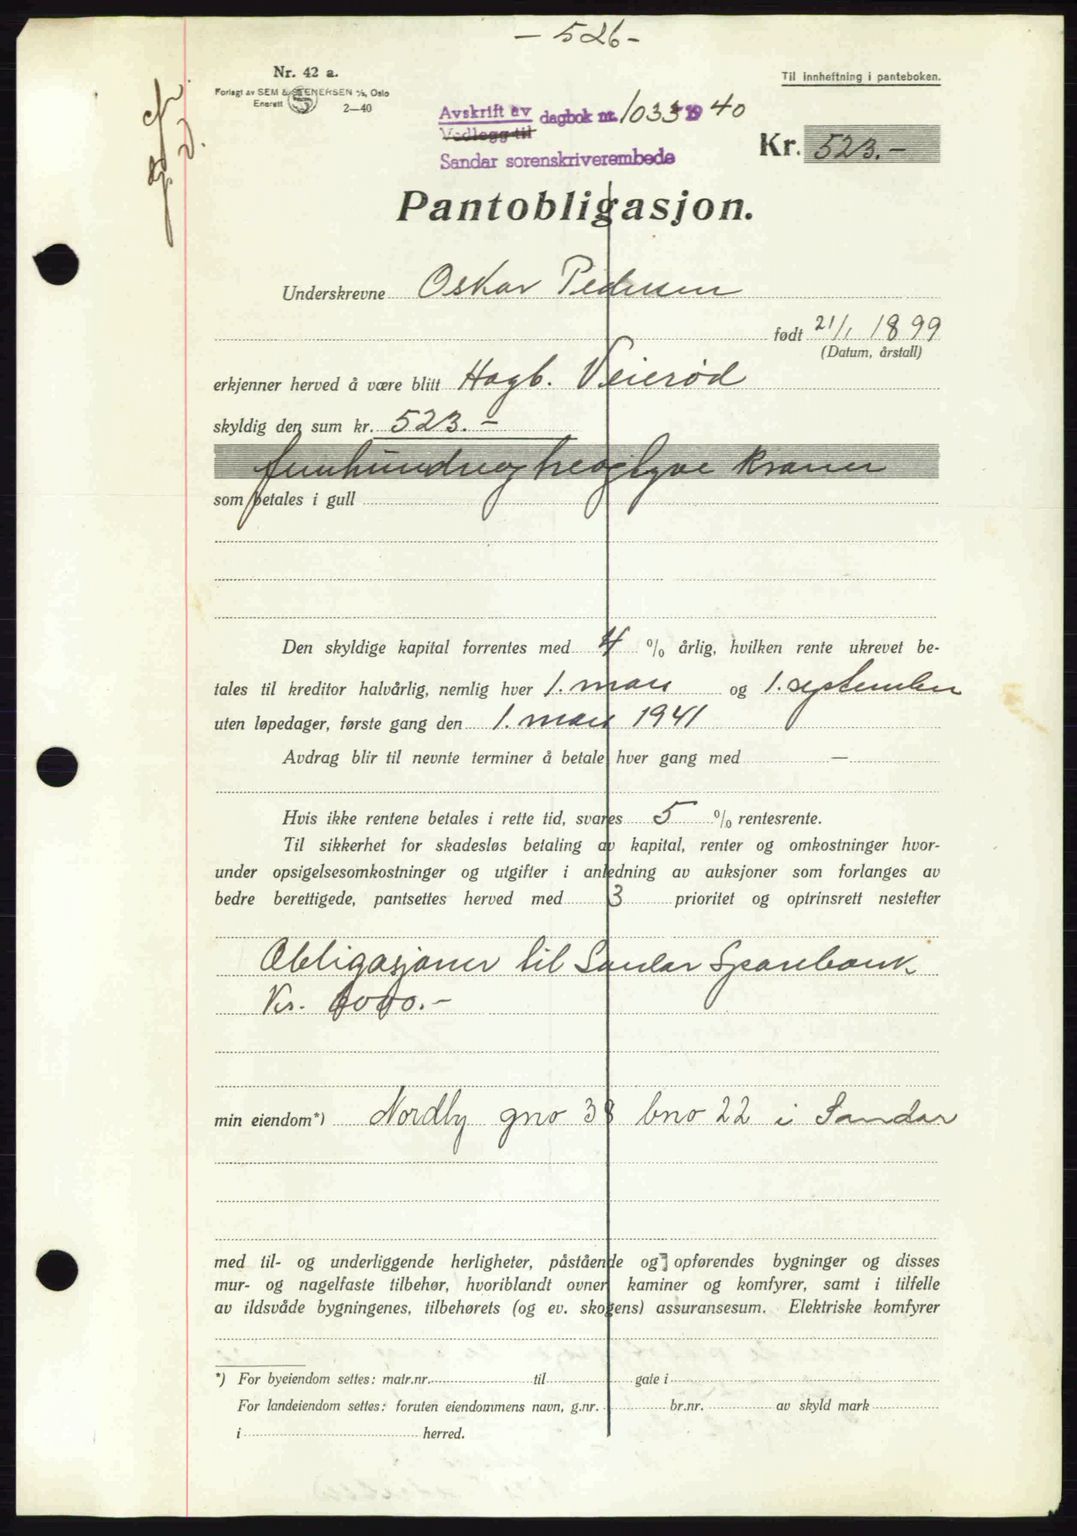 - 526 -
Nr. 42 a.
Forlagt av SEM & STENERSEN A/S, Oslo
Enerett 2—40
Til innheftning i panteboken.
Avskrift av dagbok nr. 1033 1940
Vedlegg til
Sandar sorenskriverembede
Kr. 523.-
Pantobligasjon.
Underskrevne Oskar Pedersen
født 21/1 1899
(Datum, årstall)
erkjenner herved å være blitt Hagb. Veierød
skyldig den sum kr. 523.-
femhundreogtreogtyve kroner
som betales i gull
Den skyldige kapital forrentes med 4 % årlig, hvilken rente ukrevet be-
tales til kreditor halvårlig, nemlig hver 1. mars og 1. september
uten løpedager, første gang den 1. mars 1941
Avdrag blir til nevnte terminer å betale hver gang med —
Hvis ikke rentene betales i rette tid, svares 5 % rentesrente.
Til sikkerhet for skadesløs betaling av kapital, renter og omkostninger hvor-
under opsigelsesomkostninger og utgifter i anledning av auksjoner som forlanges av
bedre berettigede, pantsettes herved med 3 prioritet og optrinsrett nestefter
Obligasjoner til Sandar Sparebank
Kr. 6000.-
min eiendom*) Nordby gno 38 bno 22 i Sandar
med til- og underliggende herligheter, påstående og opførendes bygninger og disses
mur- og nagelfaste tilbehør, hvoriblandt ovner kaminer og komfyrer, samt i tilfelle
av ildsvåde bygningenes, tilbehørets (og ev. skogens) assuransesum. Elektriske komfyrer
*) For byeiendom settes: matr.nr. til gate i
For landeiendom settes: foruten eiendommens navn, g.nr. br.nr. av skyld mark
i herred.